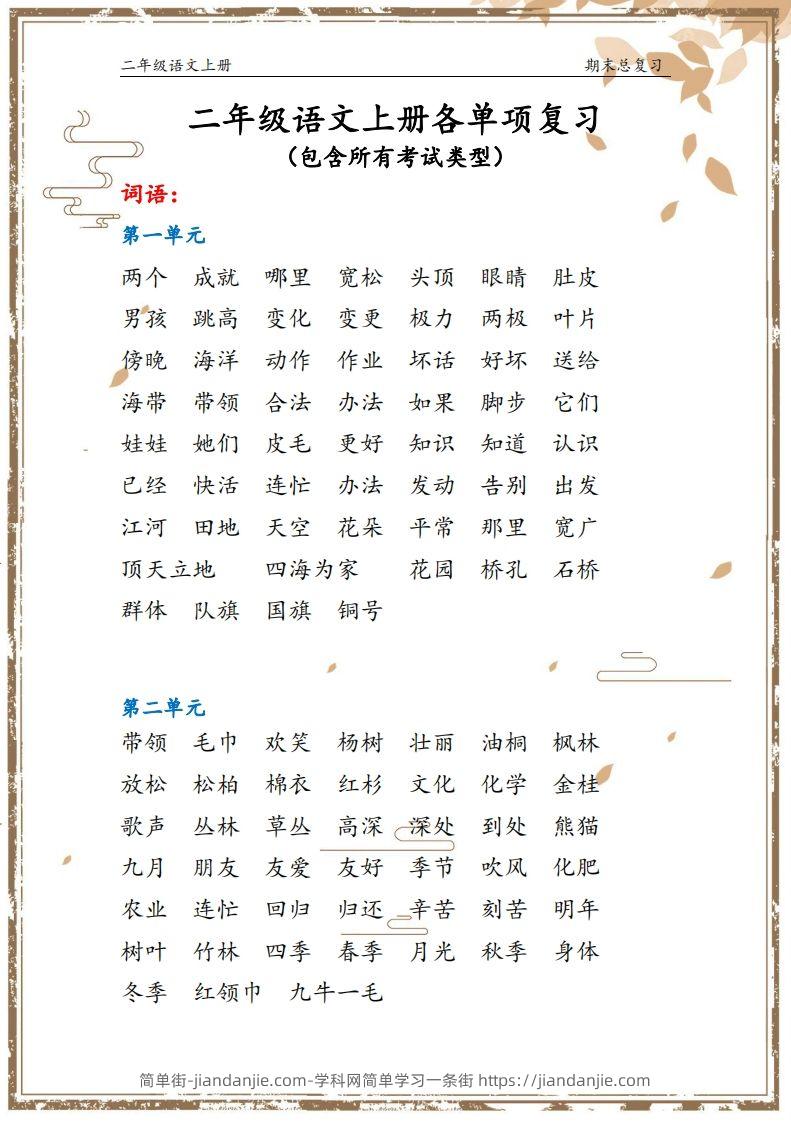 二年级语文上册 期末总复习
二年级语文上册各单项复习
（包含所有考试类型）
词语：
第一单元
两个 成就 哪里 宽松 头顶 眼睛 肚皮
男孩 跳高 变化 变更 极力 两极 叶片
傍晚 海洋 动作 作业 坏话 好坏 送给
海带 带领 合法 办法 如果 脚步 它们
娃娃 她们 皮毛 更好 知识 知道 认识
已经 快活 连忙 办法 发动 告别 出发
江河 田地 天空 花朵 平常 那里 宽广
顶天立地 四海为家 花园 桥孔 石桥
群体 队旗 国旗 铜号
第二单元
带领 毛巾 欢笑 杨树 壮丽 油桐 枫林
放松 松柏 棉衣 红杉 文化 化学 金桂
歌声 丛林 草丛 高深 深处 到处 熊猫
九月 朋友 友爱 友好 季节 吹风 化肥
农业 连忙 回归 归还 辛苦 刻苦 明年
树叶 竹林 四季 春季 月光 秋季 身体
冬季 红领巾 九牛一毛
简单街-jiandanjie.com-学科网简单学习一条街 https://jiandanjie.com